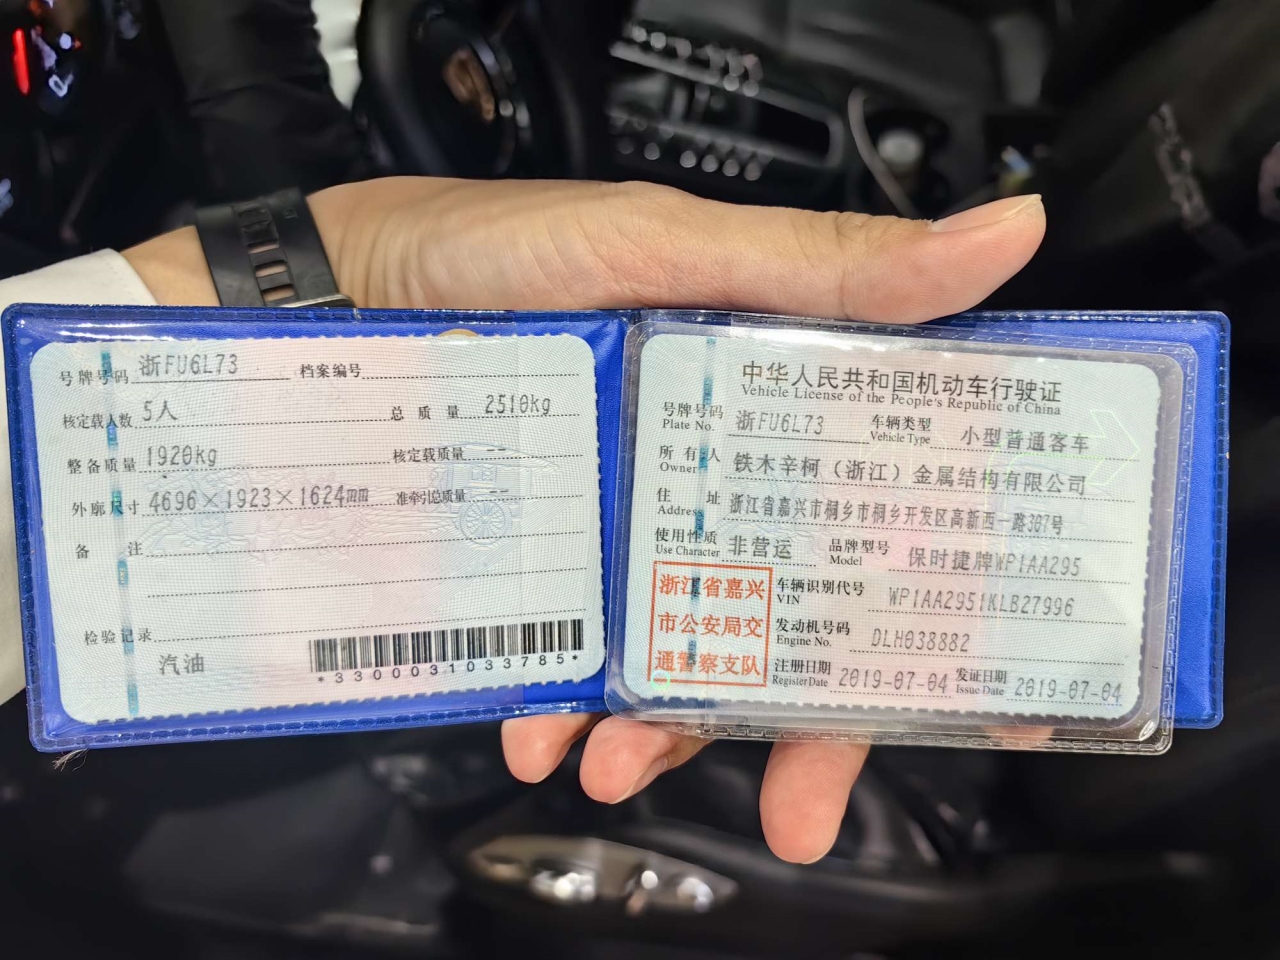 号牌号码 浙FU6L73 档案编号
核定载人数 5人 总质量 2510kg
整备质量 1920kg 核定载质量 --
外廓尺寸 4696×1923×1624mm 准牵引总质量 --
备注
检验记录
汽油
*3300031033785*
中华人民共和国机动车行驶证
Vehicle License of the People's Republic of China
号牌号码 浙FU6L73 车辆类型 小型普通客车
Plate No. Vehicle Type
所有人 铁木辛柯（浙江）金属结构有限公司
Owner
住址 浙江省嘉兴市桐乡市桐乡开发区高新西一路307号
Address
使用性质 非营运 品牌型号 保时捷牌WP1AA295
Use Character Model
浙江省嘉兴
市公安局交
通警察支队
车辆识别代号 WP1AA2951KLB27996
VIN
发动机号码 DLH038882
Engine No.
注册日期 2019-07-04 发证日期 2019-07-04
Register Date Issue Date